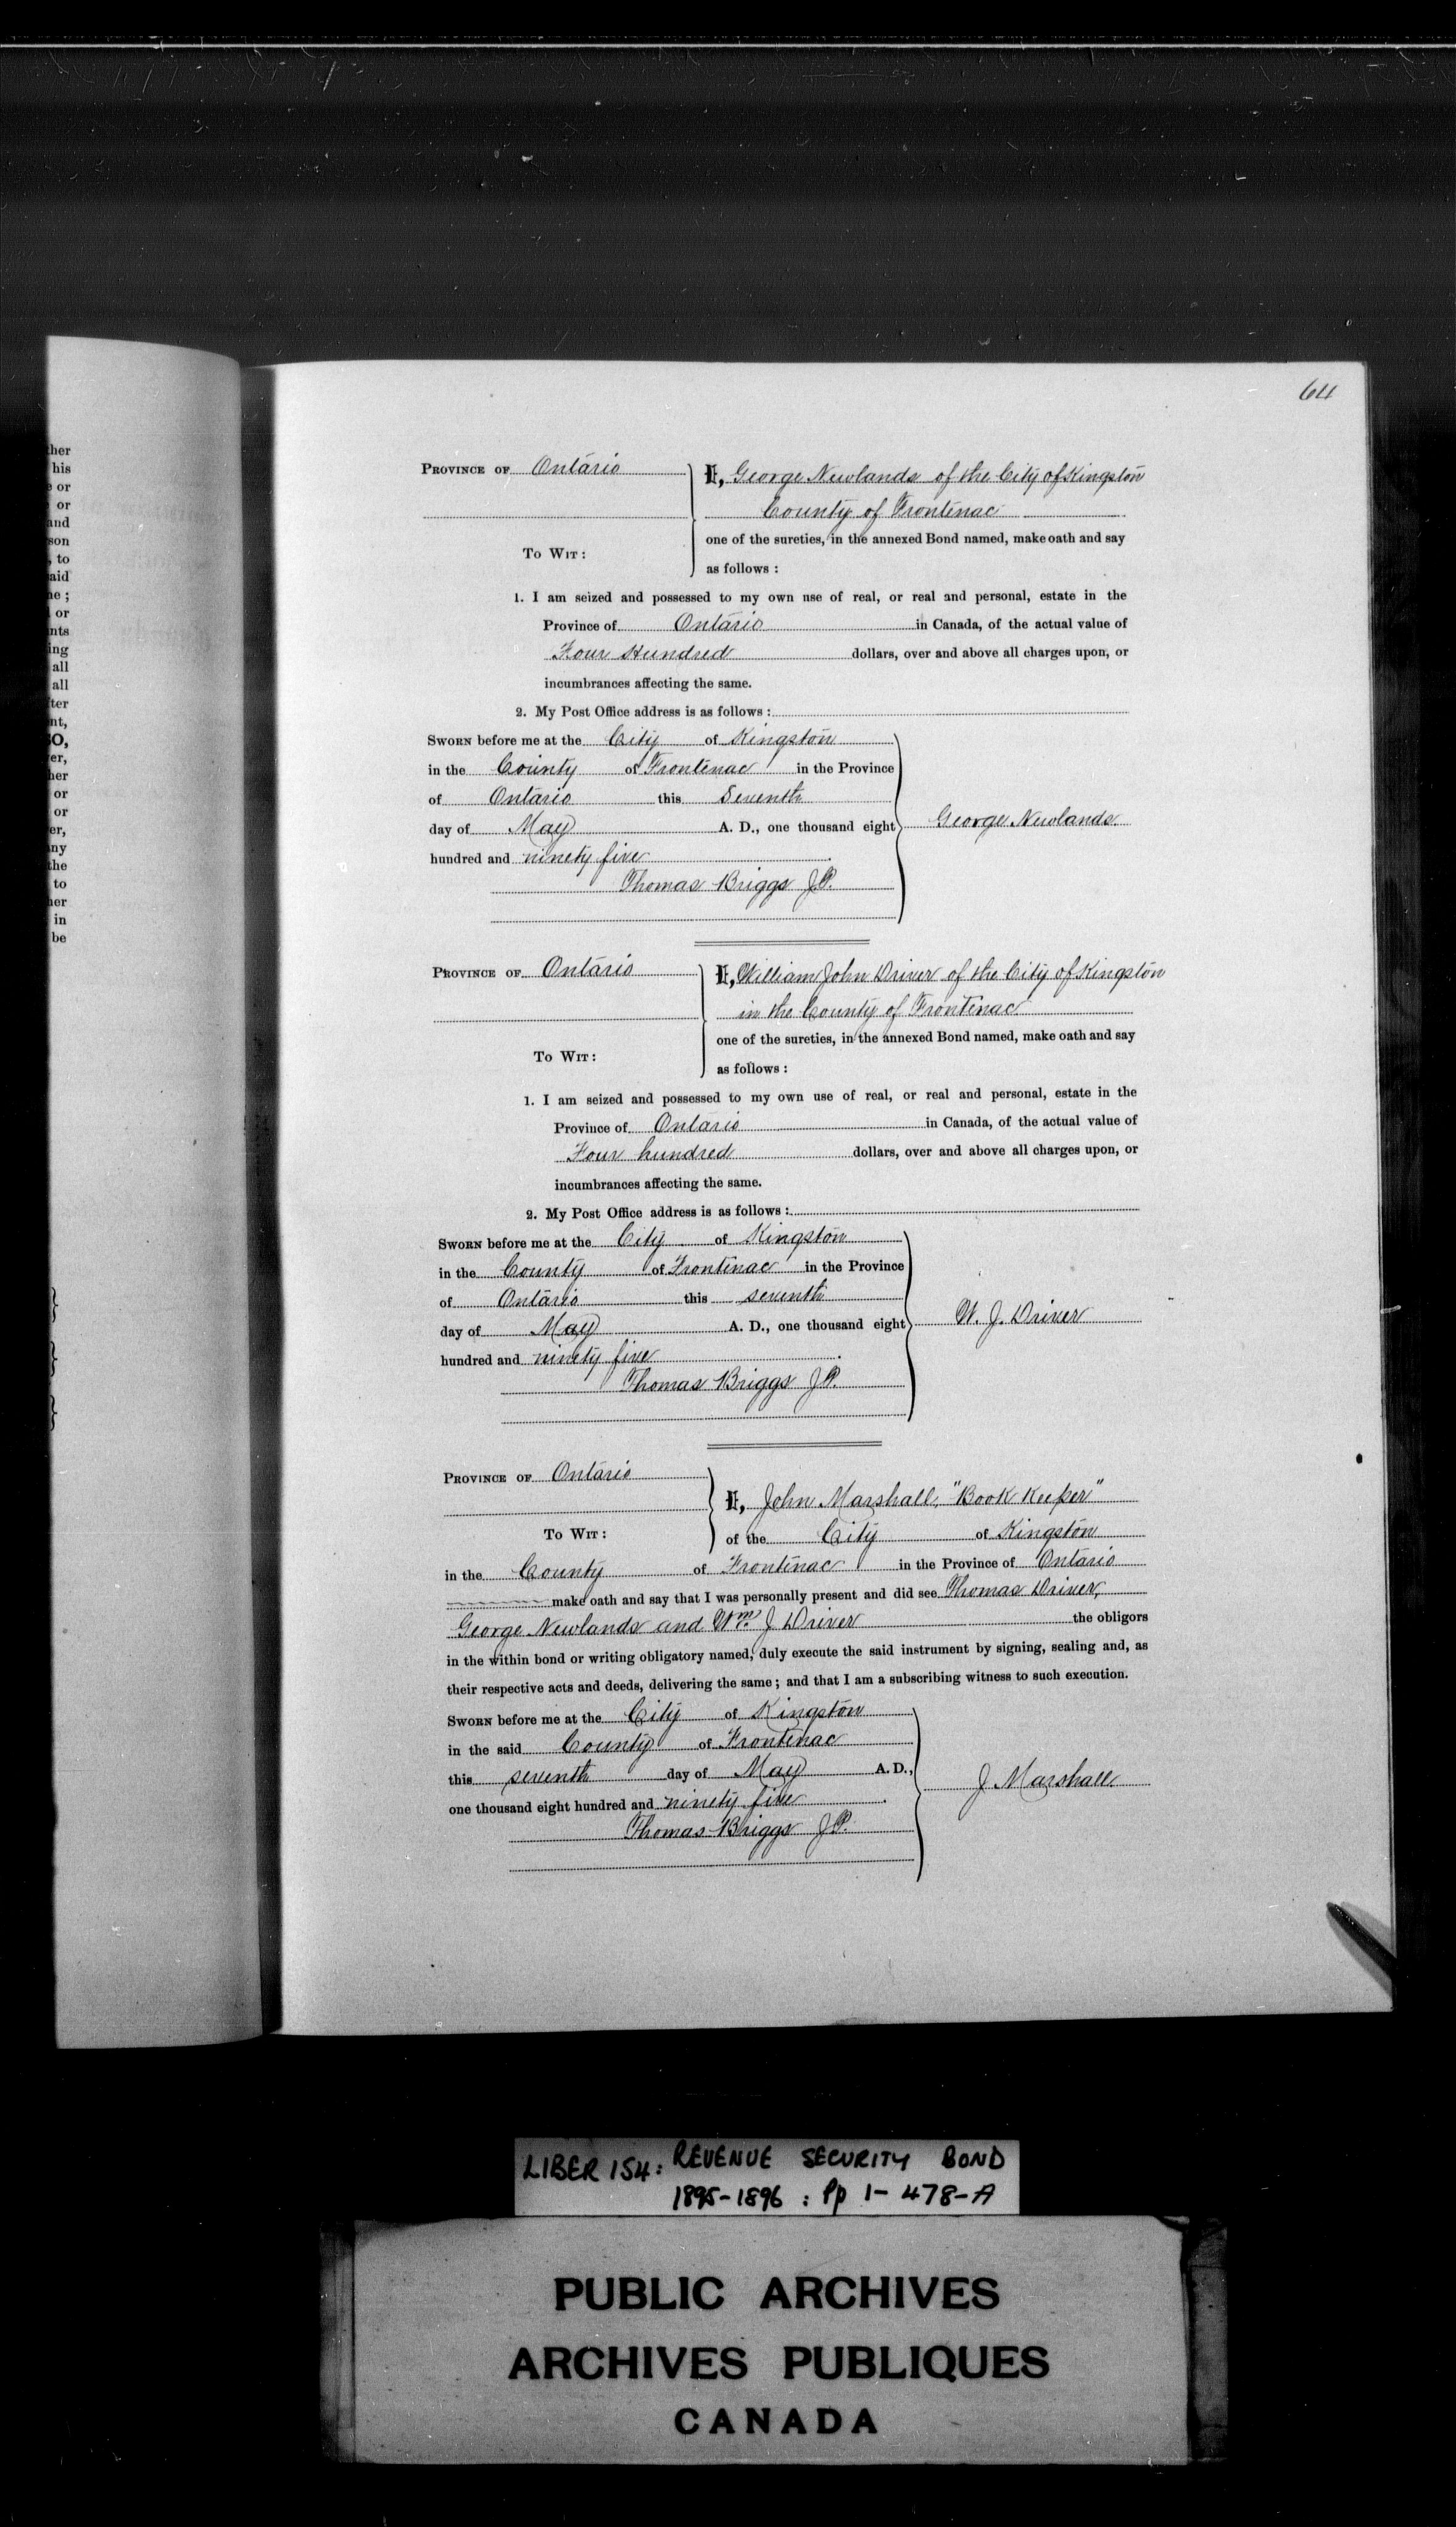 64
ther
his
e or
or
and
son
, to
aid
ne ;
or
nts
ing
all
all
ter
nt,
SO,
er,
her
or
or
er,
ny
the
to
her
in
be
PROVINCE OF Ontario
I, George Newlands of the City of Kingston
County of Frontenac
one of the sureties, in the annexed Bond named, make oath and say
TO WIT:
as follows :
1. I am seized and possessed to my own use of real, or real and personal, estate in the
Province of Ontario in Canada, of the actual value of
Four Hundred dollars, over and above all charges upon, or
incumbrances affecting the same.
2. My Post Office address is as follows :
SWORN before me at the City of Kingston
in the County of Frontenac in the Province
of Ontario this Seventh
day of May A. D., one thousand eight
George Newlands.
hundred and ninety five
Thomas Briggs J.P.
PROVINCE OF Ontario
I, William John Driver of the City of Kingston
in the County of Frontenac
one of the sureties, in the annexed Bond named, make oath and say
TO WIT:
as follows :
1. I am seized and possessed to my own use of real, or real and personal, estate in the
Province of Ontario in Canada, of the actual value of
Four hundred dollars, over and above all charges upon, or
incumbrances affecting the same.
2. My Post Office address is as follows :
SWORN before me at the City of Kingston
in the County of Frontenac in the Province
of Ontario this seventh
day of May A. D., one thousand eight
W. J. Driver
hundred and ninety five
Thomas Briggs J.P.
PROVINCE OF Ontario
I, John Marshall, "Book Keeper"
TO WIT:
of the City of Kingston
in the County of Frontenac in the Province of Ontario
make oath and say that I was personally present and did see Thomas Driver,
George Newlands and Wm. J Driver the obligors
in the within bond or writing obligatory named, duly execute the said instrument by signing, sealing and, as
their respective acts and deeds, delivering the same ; and that I am a subscribing witness to such execution.
SWORN before me at the City of Kingston
in the said County of Frontenac
this seventh day of May A. D.,
J Marshall
one thousand eight hundred and ninety five
Thomas Briggs J.P.
LIBER 154: REVENUE SECURITY BOND
1895-1896 : Pp 1- 478-A
PUBLIC ARCHIVES
ARCHIVES PUBLIQUES
CANADA